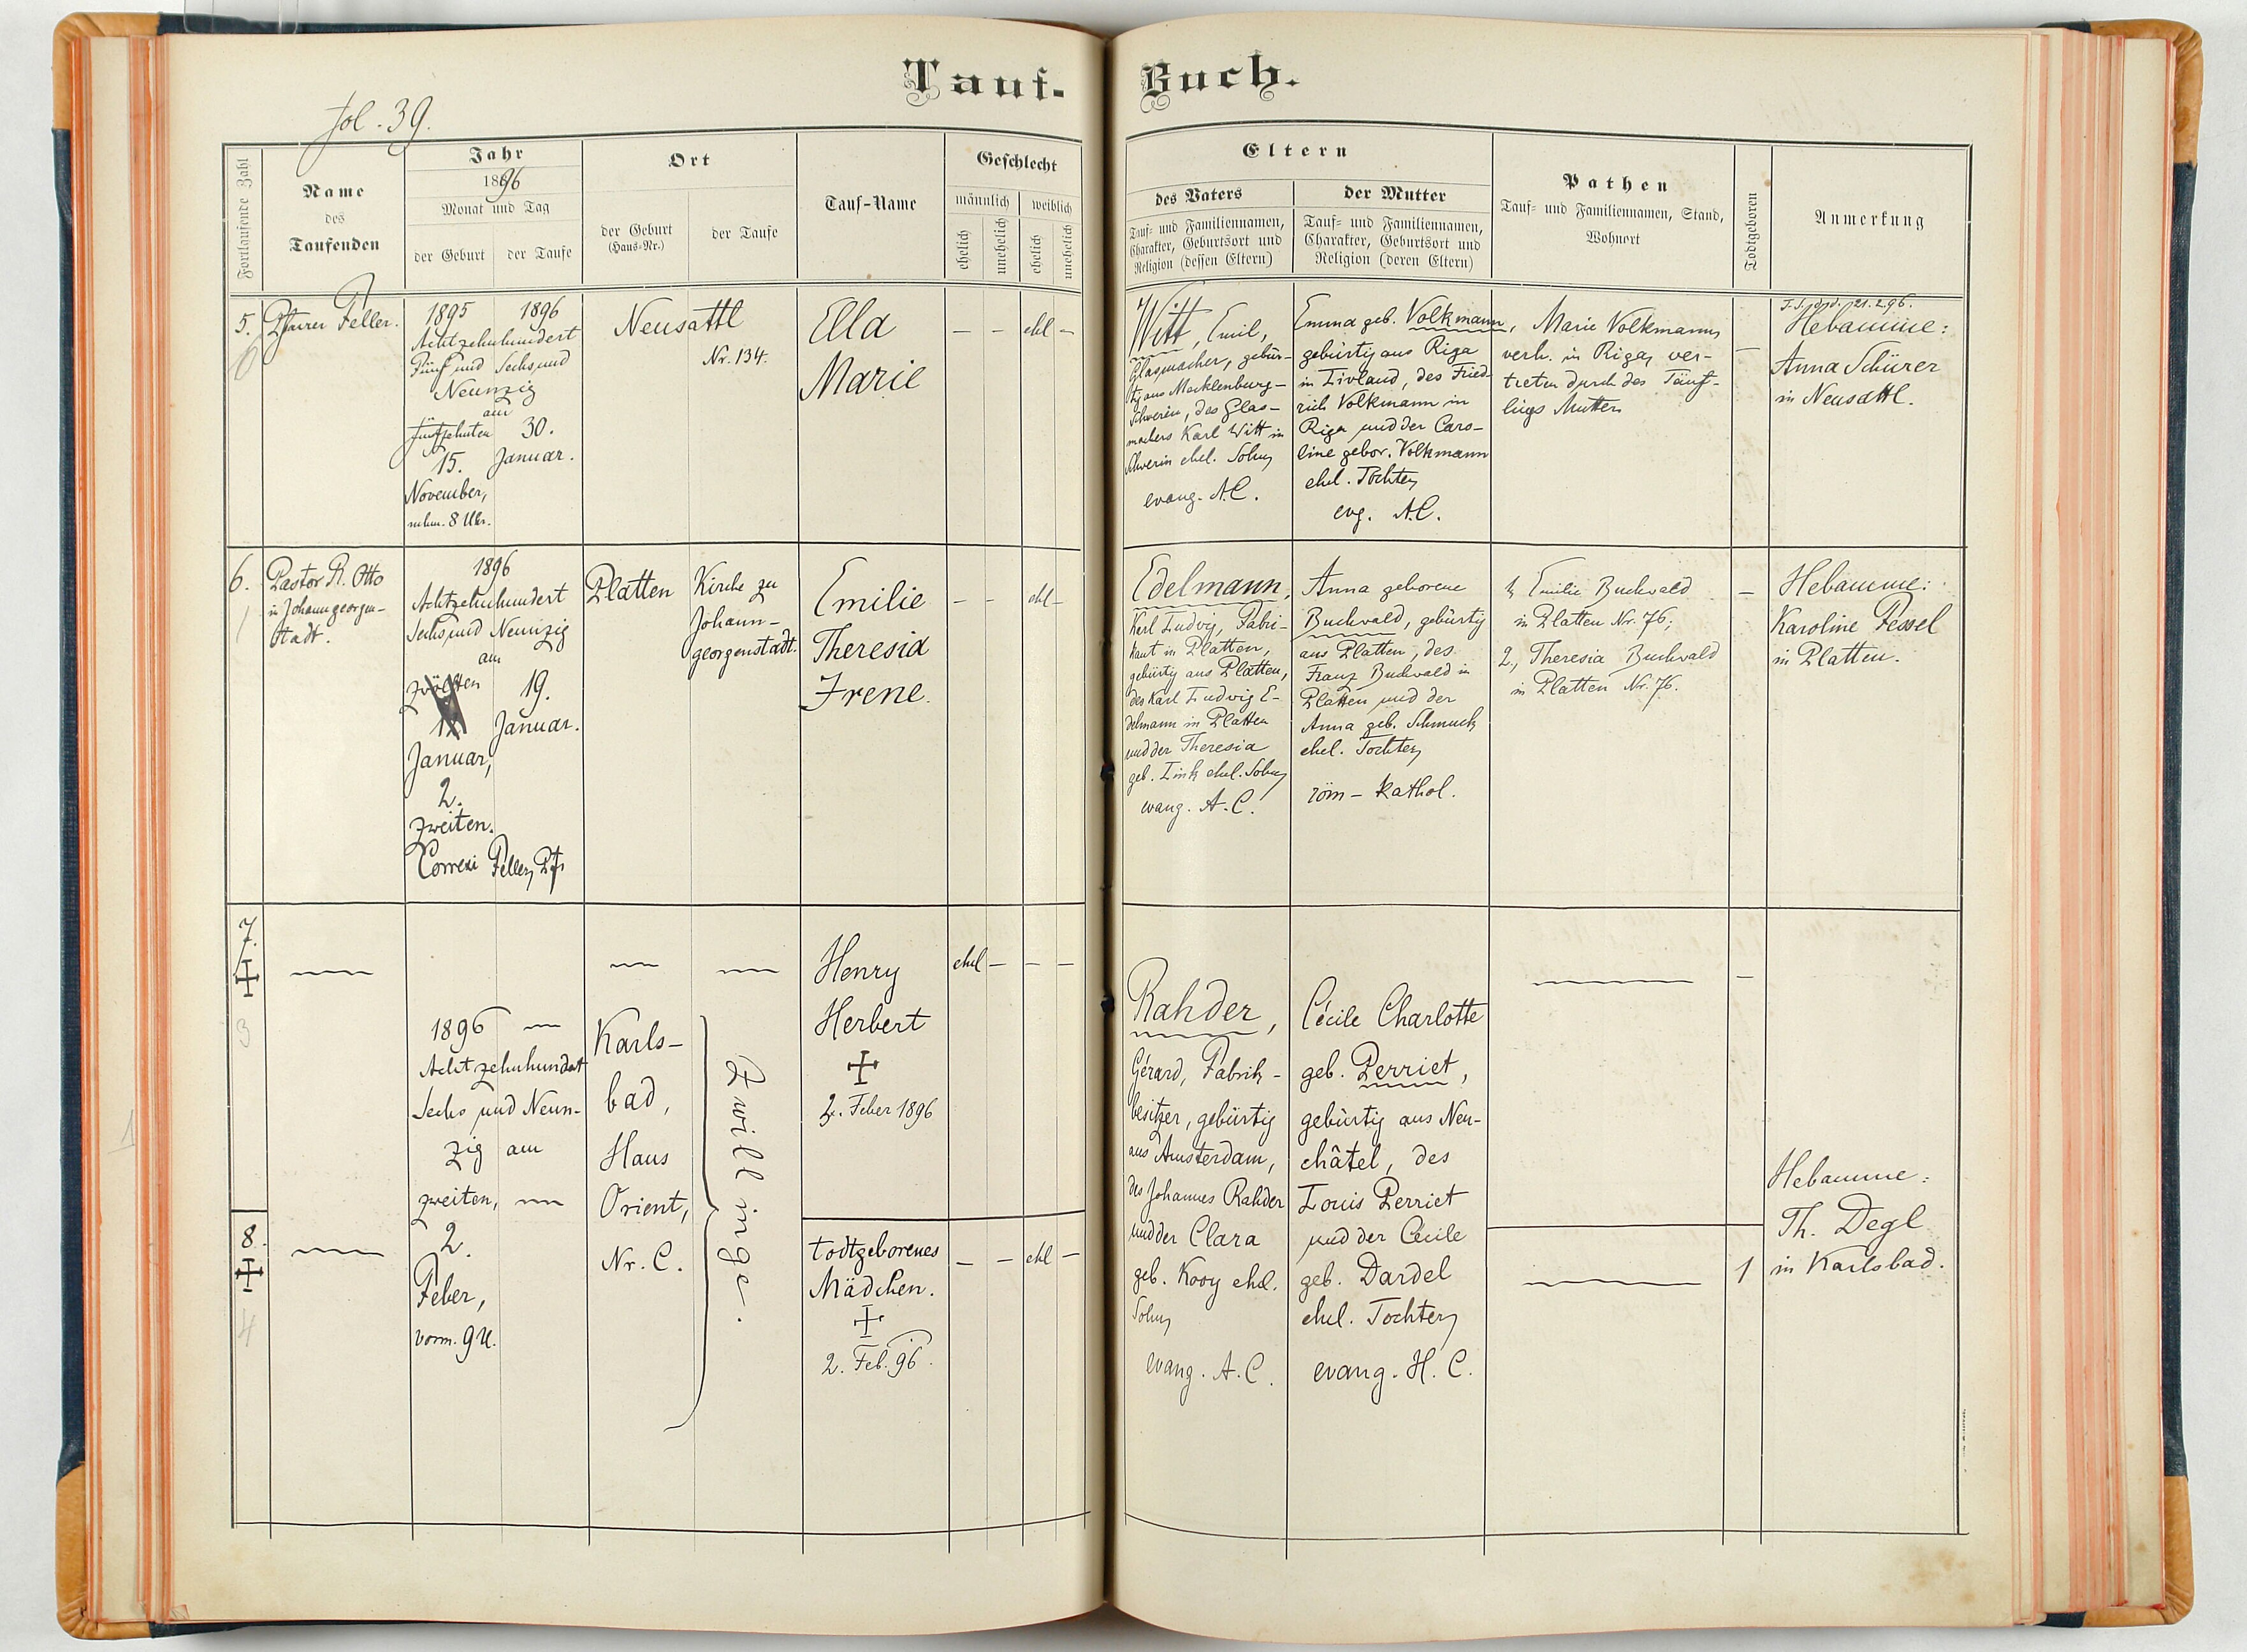 Tauf-
Buch.
fol. 39.
Fortlaufende Zahl
Name
des
Taufenden
Jahr
1896
Monat und Tag
der Geburt
der Taufe
Ort
der Geburt
(Haus-Nr.)
der Taufe
Tauf-Name
Geschlecht
männlich
weiblich
ehelich
unehelich
ehelich
unehelich
Eltern
des Vaters
Tauf- und Familiennamen,
Charakter, Geburtsort und
Religion (dessen Eltern)
der Mutter
Tauf- und Familiennamen,
Charakter, Geburtsort und
Religion (deren Eltern)
Pathen
Tauf- und Familiennamen, Stand,
Wohnort
Todtgeboren
Anmerkung
5.
Pfarrer Feller.
1895 1896
Achtzehnhundert
Fünf und Sechs und
Neunzig
am
fünfzehnten 30.
15. Januar.
November,
nchm. 8 Uhr.
Neusattl
Nr. 134.
Ella
Marie
— — ehl —
Witt, Emil,
Glasmacher, gebür-
tig aus Mecklenburg-
Schwerin, des Glas-
machers Karl Witt in
Schwerin ehel. Sohn,
evang. A.C.
Emma geb. Volkmann,
gebürtig aus Riga
in Livland, des Fried-
rich Volkmann in
Riga und der Caro-
line gebor. Volkmann
ehel. Tochter,
evg. A.C.
Marie Volkmann,
verh. in Riga, ver-
treten durch des Täuf-
lings Mutter.
—
21.2.96.
Hebamme:
Anna Schürer
in Neusattl.
6.
1
Pastor R. Otto
in Johanngeorgen-
stadt.
1896
Achtzehnhundert
Sechs und Neunzig
am
zwölften 19.
Januar.
Januar,
2.
zweiten.
Correxi Feller, Pfr
Platten
Kirche zu
Johann-
georgenstadt.
Emilie
Theresia
Irene.
— — ehl —
Edelmann,
Karl Ludvig, Fabri-
kant in Platten,
gebürtig aus Platten,
des Karl Ludwig E-
delmann in Platten
und der Theresia
geb. Link ehel. Sohn,
evang. A.C.
Anna geborene
Buchwald, gebürtig
aus Platten, des
Franz Buchwald in
Platten und der
Anna geb. Schmuck
ehel. Tochter,
röm-kathol.
1, Emilie Buchwald
in Platten Nr. 76;
2, Theresia Buchwald
in Platten Nr. 76.
—
Hebamme:
Karoline Fessel
in Platten.
7.
3
Henry
Herbert
2. Feber 1896
ehel — — —
1896 —
Achtzehnhundert
Sechs und Neun-
zig am
zweiten,
2.
Feber,
vorm. 9 U.
Karls-
bad,
Haus
Orient,
Nr. C.
Zwillinge.
Rahder,
Gérard, Fabrik-
besitzer, gebürtig
aus Amsterdam,
des Johannes Rahder
und der Clara
geb. Kooy ehel.
Sohn,
evang. A.C.
Cécile Charlotte
geb. Perriet,
gebürtig aus Neu-
châtel, des
Louis Perriet
und der Cécile
geb. Dardel
ehel. Tochter,
evang. H.C.
—
8.
4
todtgeborenes
Mädchen.
2. Feb. 96.
— — ehl —
1
Hebamme:
Th. Degl
in Karlsbad.
1